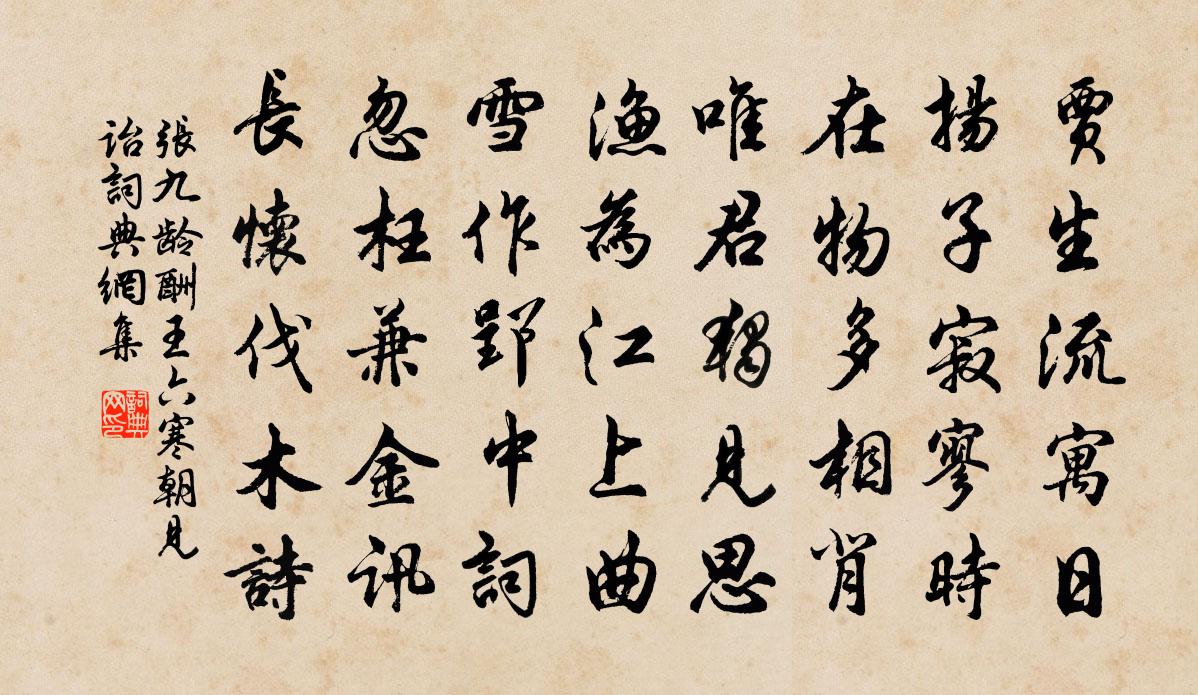 賈生流寓日
揚子寂寥時
在物多相背
唯君獨見思
漁為江上曲
雪作郢中詞
忽枉兼金訊
長懷伐木詩
張九齡酬王六寒朝見
詒詞典網集
詞典
网印